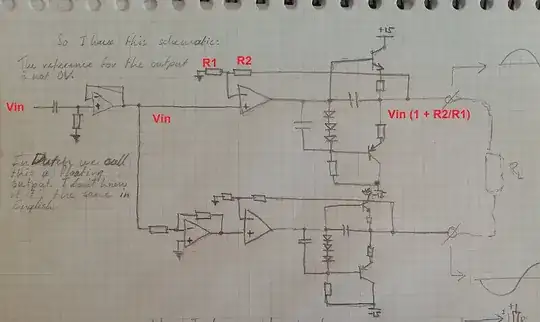 So I have this schematic:
The reference for the output
is not 0V.
+15
R1 R2
Vin
Vin
Vin (1 + R2/R1)
In Dutch we call
this a floating
output. I don't know
if it's the same in
English
RL
-15